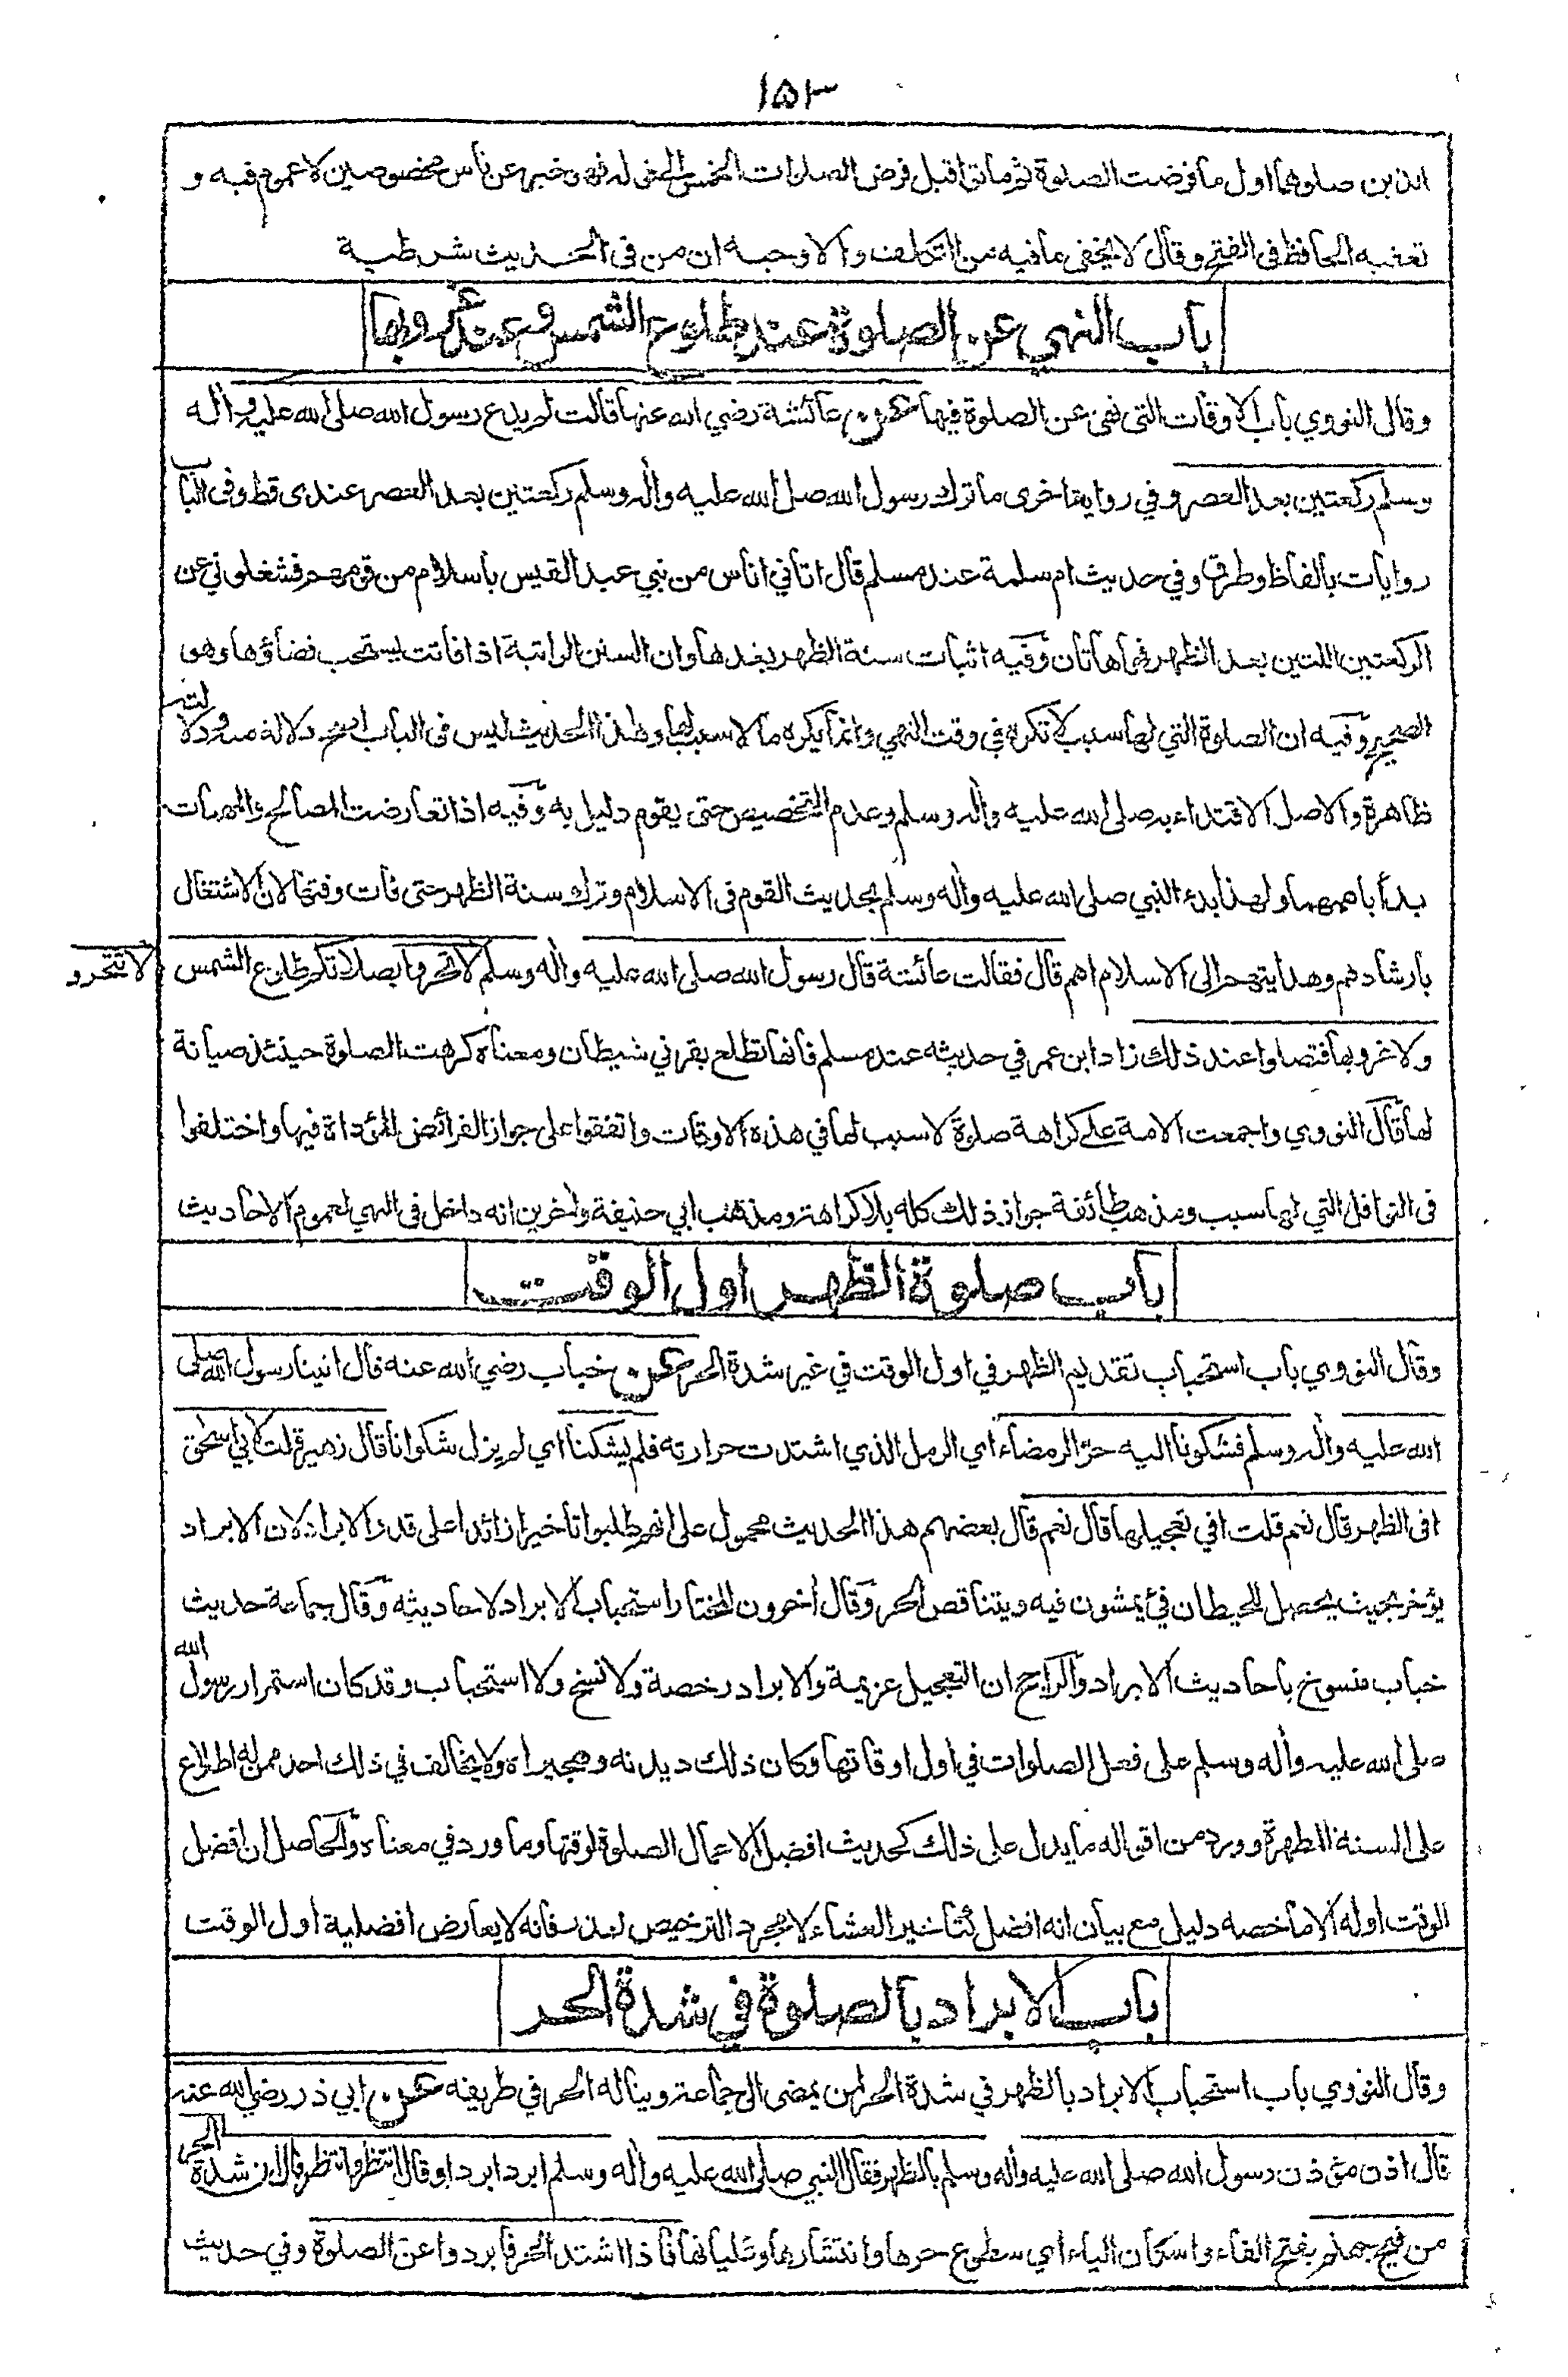 ١٥٣
الذين صلوهما اول ما فرضت الصلوة ثم ماتوا قبل فرض الصلوات الخمس لكونه خبر عن ناس مخصوصين لا عموم فيه و
تعقبه الحافظ في الفتح وقال لا يخفى ما فيه من التكلف والاوجه ان من في الحديث شرطية
باب النهي عن الصلوة عند طلوع الشمس وعند غروبها
وقال النووي باب الاوقات التي نهى عن الصلوة فيها عن عائشة رضي الله عنها قالت لم يدع رسول الله صلى الله عليه واله
وسلم ركعتين بعد العصر وفي رواية اخرى ما ترك رسول الله صلى الله عليه واله وسلم ركعتين بعد العصر عندي قط وفي الباب
روايات بالفاظ وطرق وفي حديث ام سلمة عند مسلم قال اتاني اناس من نبي عبد القيس باسلام من قومهم فشغلوني عن
الركعتين اللتين بعد الظهر فهما هاتان وفيه اثبات سنة الظهر بعدها وان السنن الراتبة اذا فاتت يستحب قضاؤها وهو
الصحيح وفيه ان الصلوة التي لها سبب لا تكره في وقت النهي وانما يكره ما لا سبب لها وهذا الحديث ليس في الباب اصح دلالة منه ودلالته
ظاهرة والاصل الاقتداء به صلى الله عليه واله وسلم وعدم التخصيص حتى يقوم دليل به وفيه اذا تعارضت المصالح والمهمات
بدأ باهمهما ولهذا بدء النبي صلى الله عليه واله وسلم بحديث القوم في الاسلام وترك سنة الظهر حتى فات وقتها لان الاشتغال
بارشادهم وهدايتهم الى الاسلام اهم قال فقالت عائشة قال رسول الله صلى الله عليه واله وسلم لا تحروا بصلاتكم طلوع الشمس
لا تتحرو
ولا غروبها فتصلوا عند ذلك زاد ابن عمر في حديثه عند مسلم فانها تطلع بقرني شيطان ومعناه كرهت الصلوة حينئذ صيانة
لها قال النووي واجمعت الامة على كراهة صلوة لا سبب لها في هذه الاوقات واتفقوا على جواز الفرائض المؤداة فيها واختلفوا
في النوافل التي لها سبب ومذهب طائفة جواز ذلك كله بلا كراهة ومذهب ابي حنيفة واخرين انه داخل في النهي لعموم الاحاديث
باب صلوة الظهر اول الوقت
وقال النووي باب استحباب تقديم الظهر في اول الوقت في غير شدة الحر عن خباب رضي الله عنه قال اتينا رسول الله صلى
الله عليه واله وسلم فشكونا اليه حر الرمضاء اي الرمل الذي اشتدت حرارته فلم يشكنا اي لم يزل شكوانا قال زهير قلت لابي اسحق
افي الظهر قال نعم قلت افي تعجيلها قال نعم قال بعضهم هذا الحديث محمول على انهم طلبوا تاخيرا زائدا على قدر الابراد لان الابراد
يؤخر بحيث يحصل للحيطان فيئ يمشون فيه ويتناقص الحر وقال اخرون المختار استحباب الابراد لاحاديثه وقال جماعة حديث
خباب منسوخ باحاديث الابراد والراجح ان التعجيل عزيمة والابراد رخصة ولا نسخ ولا استحباب وقد كان استمرار رسول الله
صلى الله عليه واله وسلم على فعل الصلوات في اول اوقاتها وكان ذلك ديدنه وهجيراه ولا يخالف في ذلك احد ممن له اطلاع
على السنة المطهرة وورد من اقواله ما يدل على ذلك كحديث افضل الاعمال الصلوة لوقتها وما ورد في معناه والحاصل ان افضل
الوقت اوله الا ما خصه دليل مع بيان انه افضل كتاخير العشاء لا مجرد الترخيص لعذر فانه لا يعارض افضلية اول الوقت
باب الابراد بالصلوة في شدة الحر
وقال النووي باب استحباب الابراد بالظهر في شدة الحر لمن يمضي الى جماعة ويناله الحر في طريقه عن ابي ذر رضي الله عنه
قال اذن مؤذن رسول الله صلى الله عليه واله وسلم بالظهر فقال النبي صلى الله عليه واله وسلم ابرد ابرد او قال انتظر انتظر وقال ان شدة الحر
من فيح جهنم بفتح الفاء واسكان الياء اي سطوع حرها وانتشارها وغليانها فاذا اشتد الحر فابردوا عن الصلوة وفي حديث